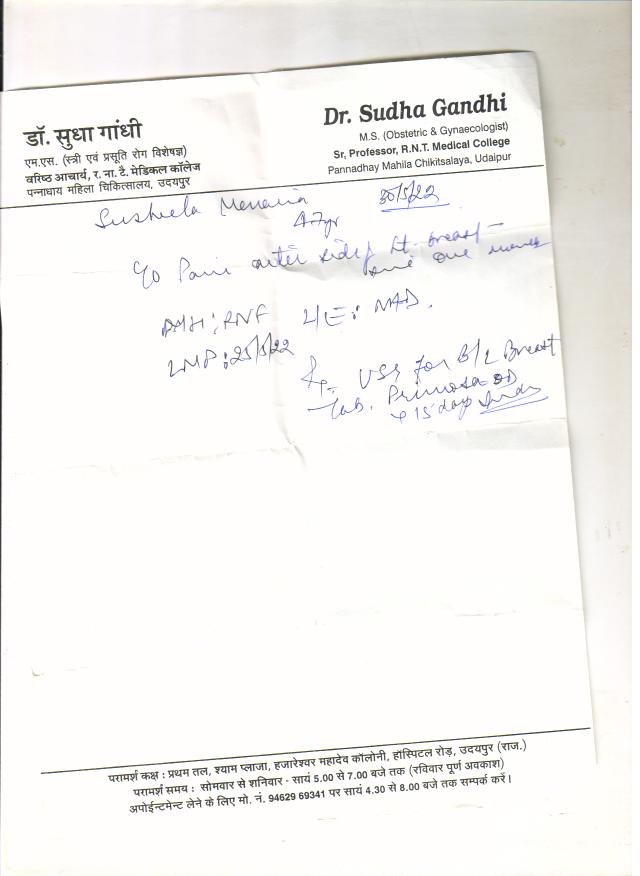 डॉ. सुधा गांधी
एम.एस. (स्त्री एवं प्रसूति रोग विशेषज्ञ)
वरिष्ठ आचार्य, र. ना. टै. मेडिकल कॉलेज
पन्नाधाय महिला चिकित्सालय, उदयपुर
Dr. Sudha Gandhi
M.S. (Obstetric & Gynaecologist)
Sr, Professor, R.N.T. Medical College
Pannadhay Mahila Chikitsalaya, Udaipur
Susheela Menaria 30/5/22
47yr
c/o Pain outer side of breast
since one
RNF L/E: NAD.
LMP: 25/5/22
USG for B/L Breast
Tab. Primosa OD
x 15 days
परामर्श कक्ष : प्रथम तल, श्याम प्लाजा, हजारेश्वर महादेव कॉलोनी, हॉस्पिटल रोड़, उदयपुर (राज.)
परामर्श समय : सोमवार से शनिवार - सायं 5.00 से 7.00 बजे तक (रविवार पूर्ण अवकाश)
अपोईन्टमेन्ट लेने के लिए मो. नं. 94629 69341 पर सायं 4.30 से 8.00 बजे तक सम्पर्क करें।